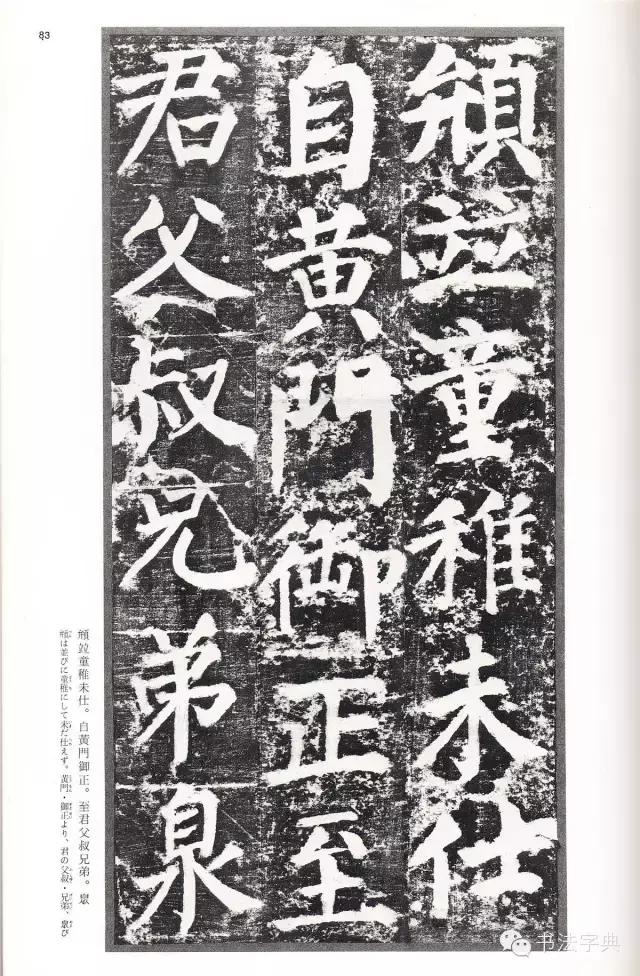 83
竝童稚未仕
自黄門御正至
君父叔兄弟臮
竝童稚未仕。自黄門御正。至君父叔兄弟。臮
は並びに童稚にして未だ仕えず。黄門・御正より、君の父叔・兄弟、臮び
书法字典